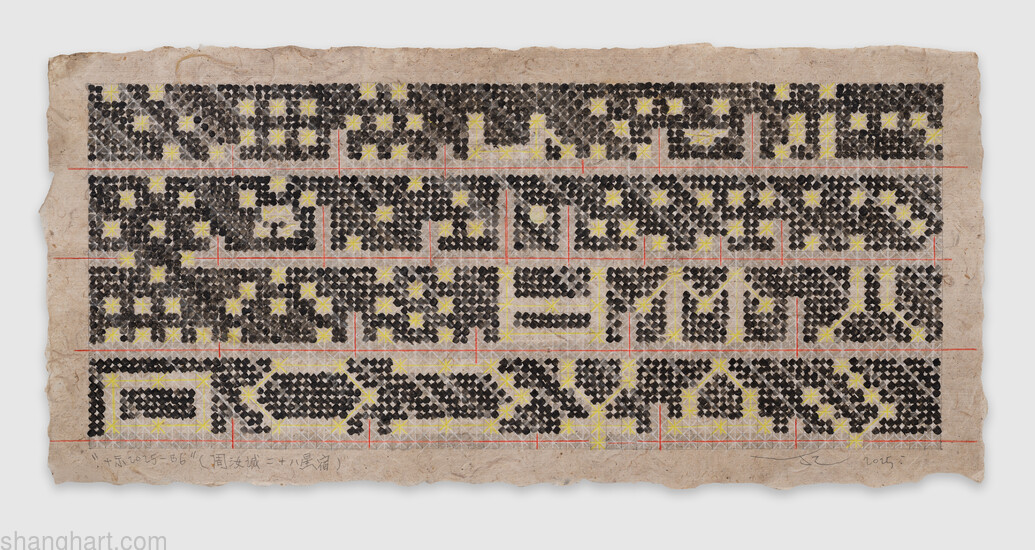 "十示2025-B6"(周汝诚二十八星宿) 2025.
shanghart.com